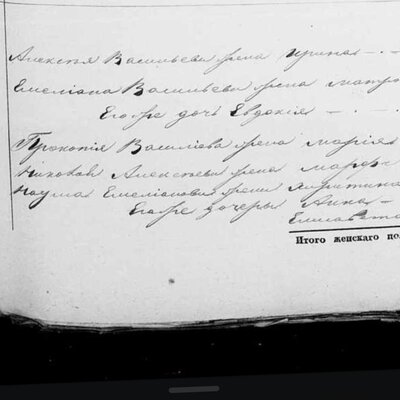 Алексѣя Васильева жена Ирина
Емелiана Васильева жена Матро
Его же дочь Евдокiя
Прокопiя Василiева жена Марiя
Алексѣева жена Марѳ
Наума Емелiанова жена
Его же дочери Анна
Елисавета
Итого женскаго по